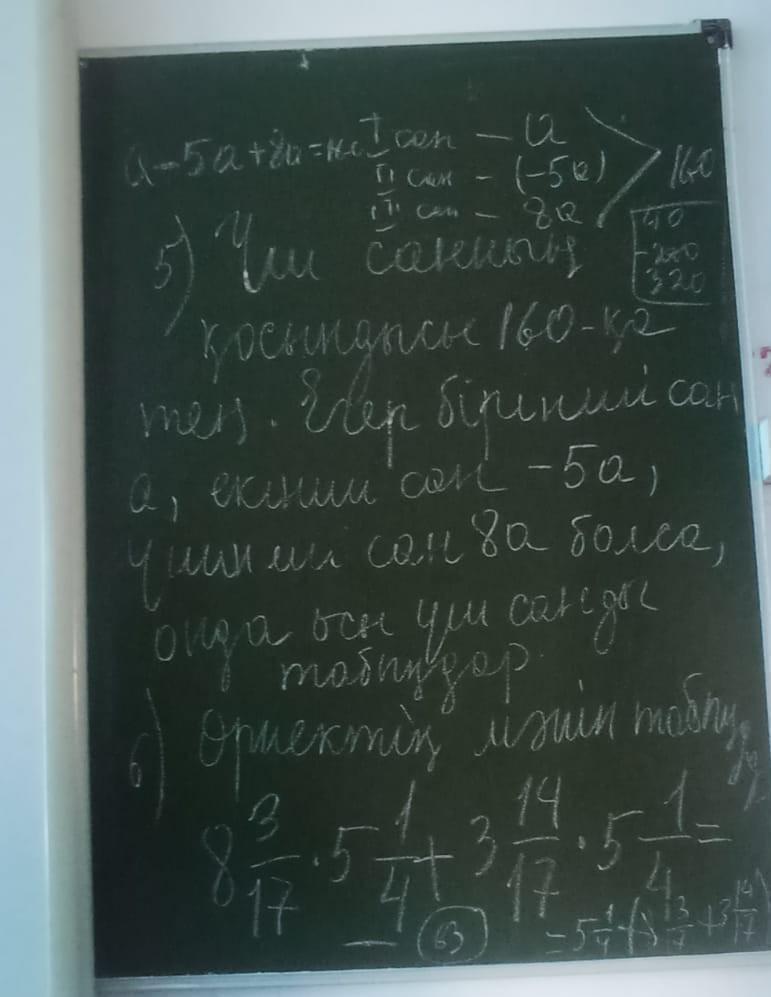 a-5a+8a=160
I сан – a
II сан – (-5a)
III сан – 8a
160
40
-200
320
5) Үш санның
қосындысы 160-қа
тең. Егер бірінші сан
a, екінші сан -5a,
үшінші сан 8a болса,
онда осы үш санды
табыңдар.
6) Өрнектің мәнін табыңдар
8 3/17 · 5 1/4 + 3 14/17 · 5 1/4 =
63
= 5 1/4